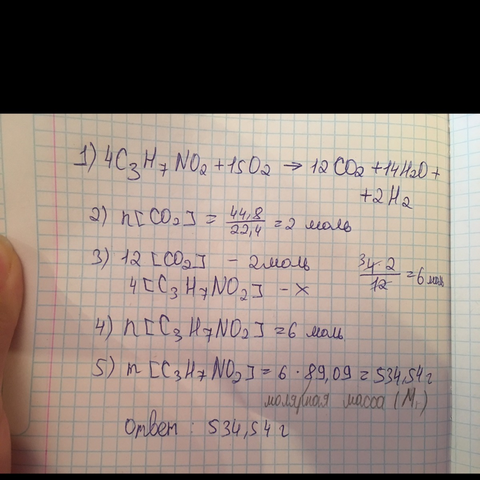 1) 4C3H7NO2 + 15O2 → 12CO2 + 14H2O +
+ 2H2
2) n[CO2] = 44,8/22,4 = 2 моль
3) 12[CO2] - 2моль
4[C3H7NO2] - x
34·2/12 = 6 моль
4) n[C3H7NO2] = 6 моль
5) m[C3H7NO2] = 6 · 89,09 = 534,54 г
молярная масса (M,)
Ответ: 534,54 г